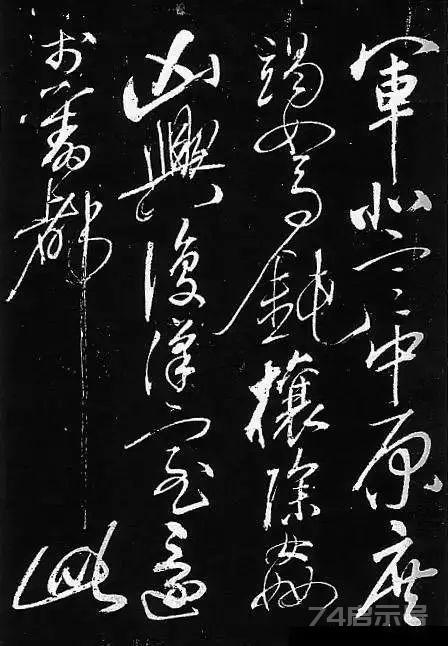 軍北定中原庶
竭駑鈍攘除姦
凶興復漢室還
於舊都此
74启示号